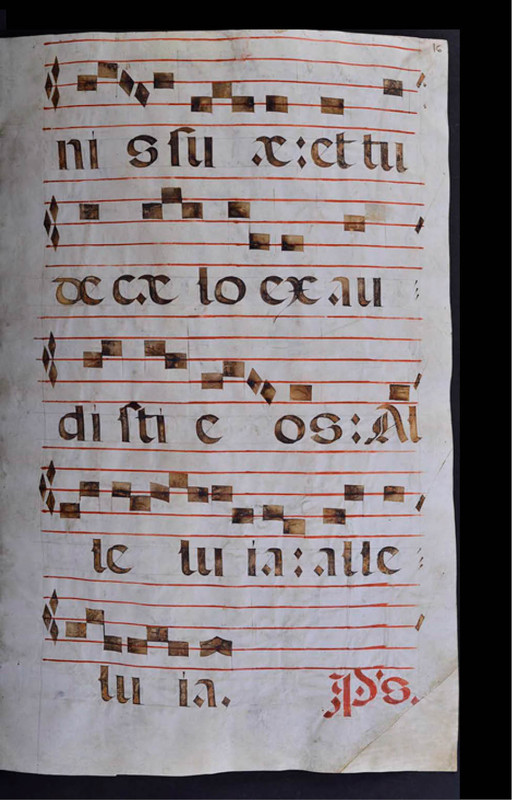 16
ni s ſu æ: et tu
de cæ lo ex au
di ſti e os: Al
le lu ia: alle
lu ia. Ps.